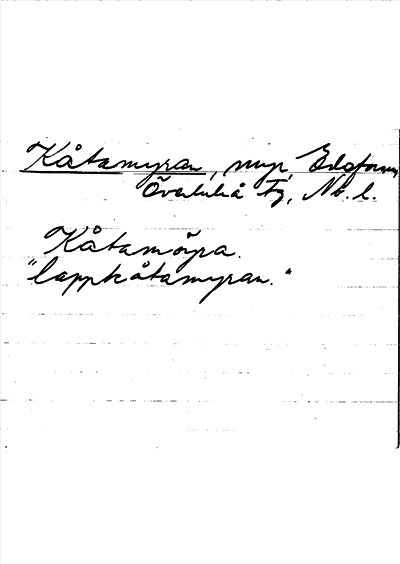 Kåtamyran, myr, Edefors,
Överluleå Tg, Nb. l.
Kåtamo᷈yra.
"lappkåtamyran."